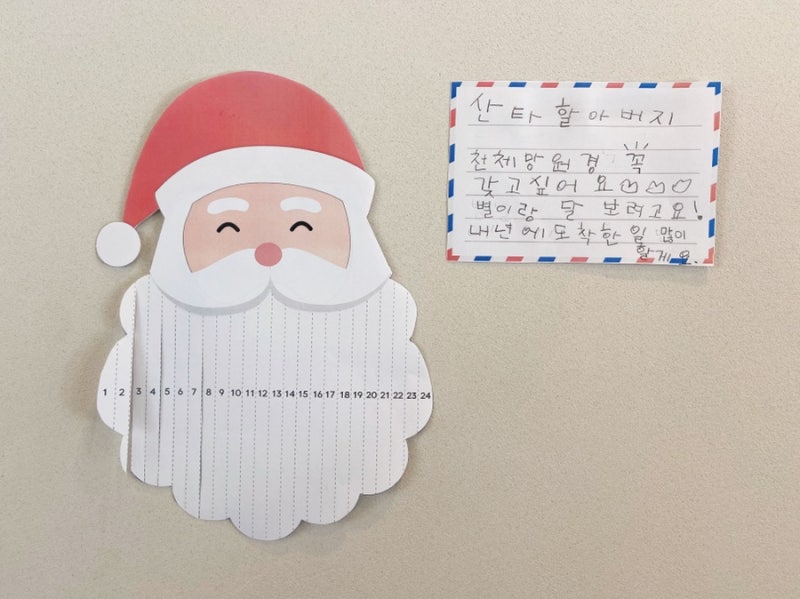 1 2 3 4 5 6 7 8 9 10 11 12 13 14 15 16 17 18 19 20 21 22 23 24
산타할아버지
천체망원경 꼭
갖고싶어요♡♡♡
별이랑 달 보려고요!
내년에도착한 일 많이
할게요.